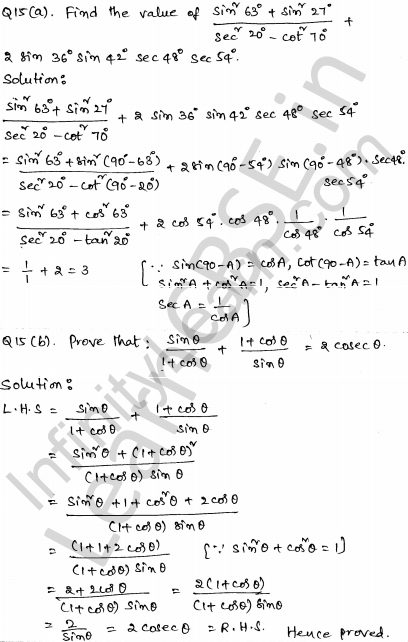 Q15(a). Find the value of (sin² 63° + sin² 27°)/(sec² 20° - cot² 70°) +
2 sin 36° sin 42° sec 48° sec 54°.
Solution:
(sin² 63° + sin² 27°)/(sec² 20° - cot² 70°) + 2 sin 36° sin 42° sec 48° sec 54°
= (sin² 63° + sin² (90° - 63°))/(sec² 20° - cot² (90° - 20°)) + 2 sin (90° - 54°) sin (90° - 48°) · sec 48° sec 54°
= (sin² 63° + cos² 63°)/(sec² 20° - tan² 20°) + 2 cos 54° · cos 48° · 1/cos 48° · 1/cos 54°
= 1/1 + 2 = 3 [∵ sin(90 - A) = cos A, cot(90 - A) = tan A
sin² A + cos² A = 1, sec² A - tan² A = 1
sec A = 1/cos A]
Q15(b). Prove that: sinθ/(1 + cosθ) + (1 + cosθ)/sinθ = 2 cosec θ.
Solution:
L.H.S = sinθ/(1 + cosθ) + (1 + cosθ)/sinθ
= (sin²θ + (1 + cosθ)²)/((1 + cosθ) sinθ)
= (sin²θ + 1 + cos²θ + 2cosθ)/((1 + cosθ) sinθ)
= (1 + 1 + 2 cosθ)/((1 + cosθ) sinθ) [∵ sin²θ + cos²θ = 1]
= (2 + 2cosθ)/((1 + cosθ) sinθ) = 2(1 + cosθ)/((1 + cosθ) sinθ)
= 2/sinθ = 2 cosec θ = R.H.S. Hence proved.
InfinityLearn.com
LearnCBSE.in